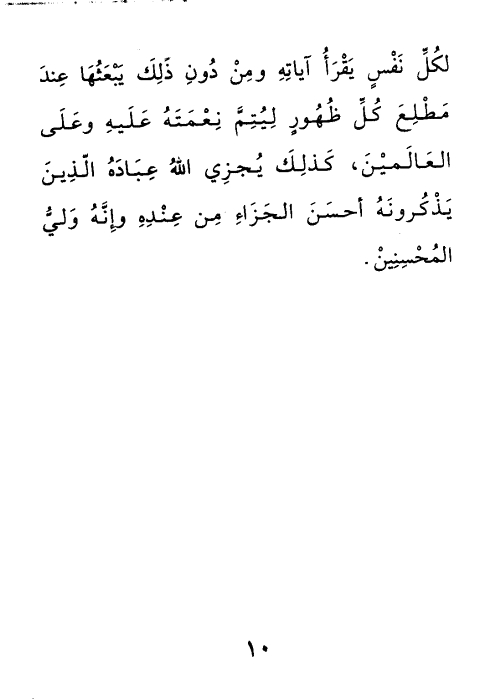 لكُلِّ نَفْسٍ يَقْرَأُ آياتِهِ ومِنْ دُونِ ذَلِكَ يَبْعَثُهَا عِندَ
مَطْلِعَ كُلِّ ظُهُورٍ لِيُتِمَّ نِعْمَتَهُ عَلَيهِ وعَلَى
العَالَميْنَ، كَذلِكَ يُجزِي اللهُ عِبَادَهُ الّذِينَ
يَذْكُرونَهُ أحسَنَ الجَزَاءِ مِن عِنْدِهِ وإنَّهُ وَليُّ
المُحْسِنِينْ.
١٠